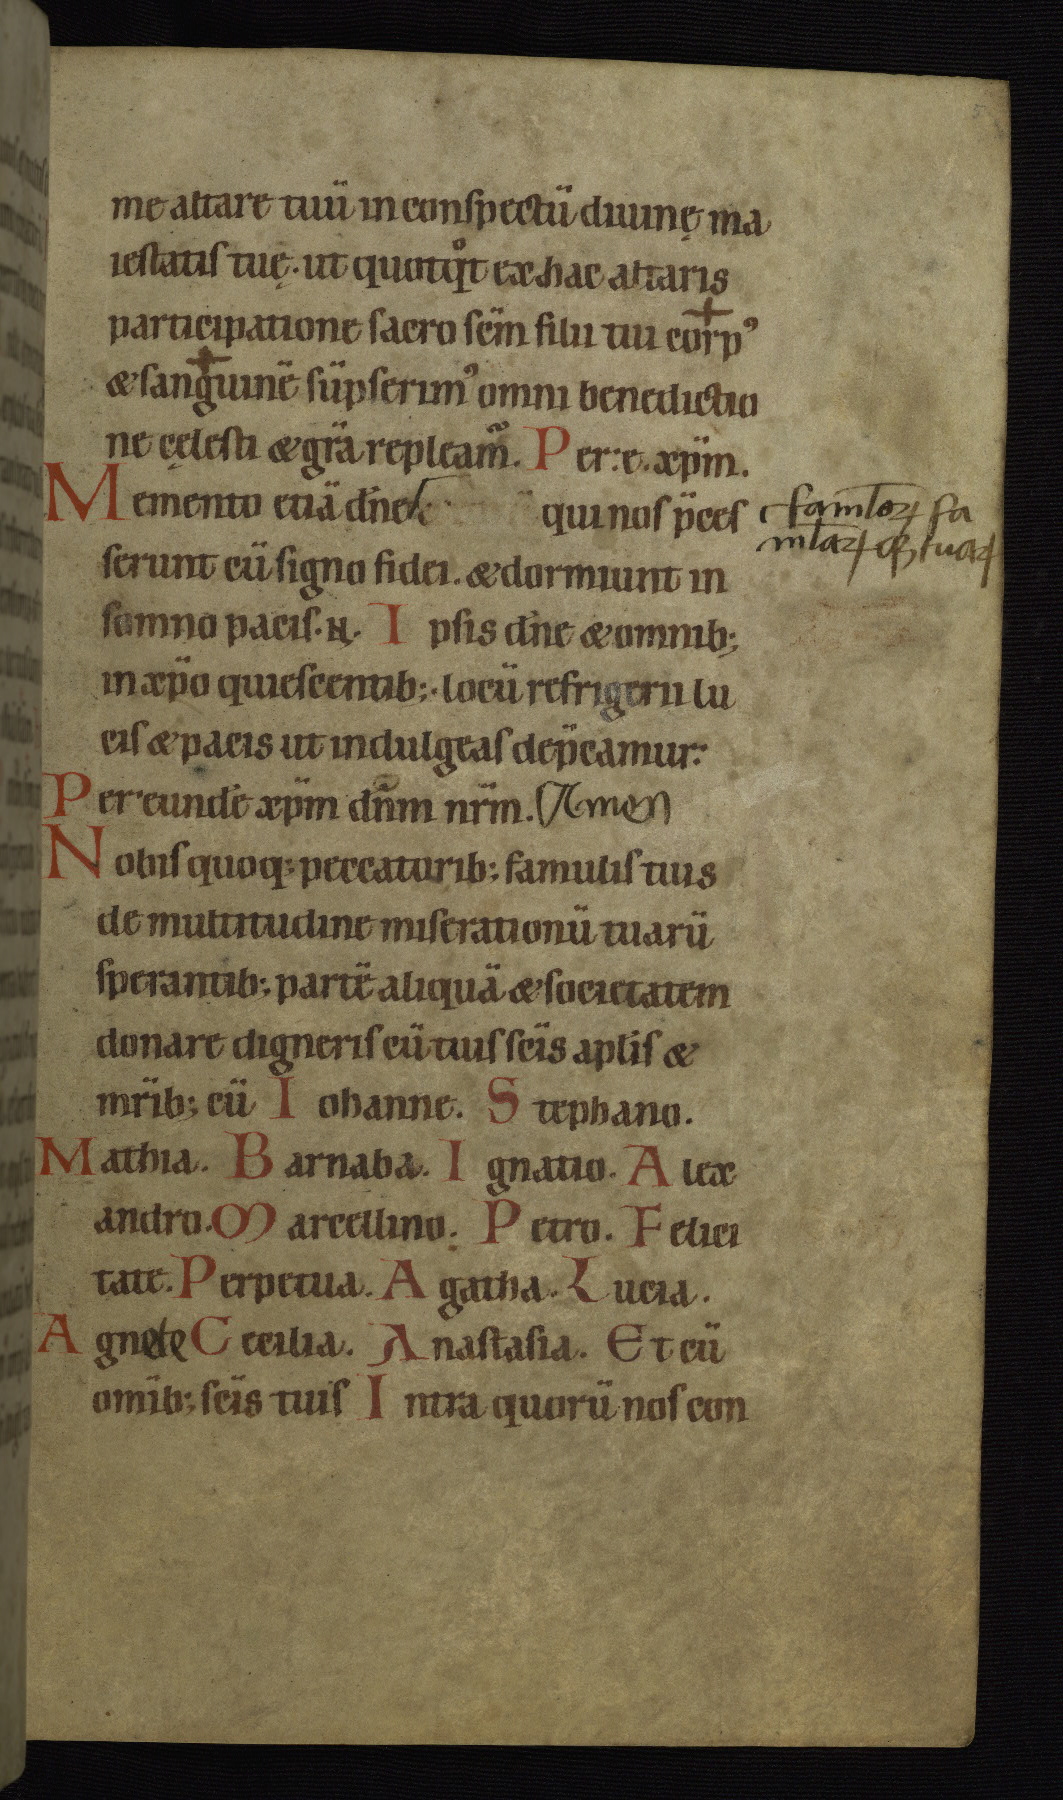 me altare tuū in conspectū diuinę ma
iestatis tuę. ut quotqͦt ex hac altaris
participatione sacro scm̄ filii tui corpꝰ
& sanguinē sūpserimꝰ omni benedictio
ne cęlesti & gr̄a repleam̄. Per. e. xp̄m.
Memento etiā dn̄e qui nos p̄ces famlorꝝ fa
serunt cū signo fidei. & dormiunt in mlarꝝqꝫ tuarꝝ
somno pacis. N. Ipsis dn̄e & omnib;
in xp̄o quiescentib;. locū refrigerii lu
cis & pacis ut indulgeas dep̄camur.
Per eundē xp̄m dn̄m nr̄m. Amen
Nobis quoq; peccatorib; famulis tuis
de multitudine miserationū tuarū
sperantib; partē aliquā & societatem
donare digneris cū tuis scīs aplis &
mr̄ib; cū Iohanne. Stephano.
Mathia. Barnaba. Ignatio. Alex
andro. Marcellino. Petro. Felici
tate. Perpetua. Agatha. Lucia.
Agnete Cecilia. Anastasia. Et cū
omīb; scīs tuis Intra quorū nos con